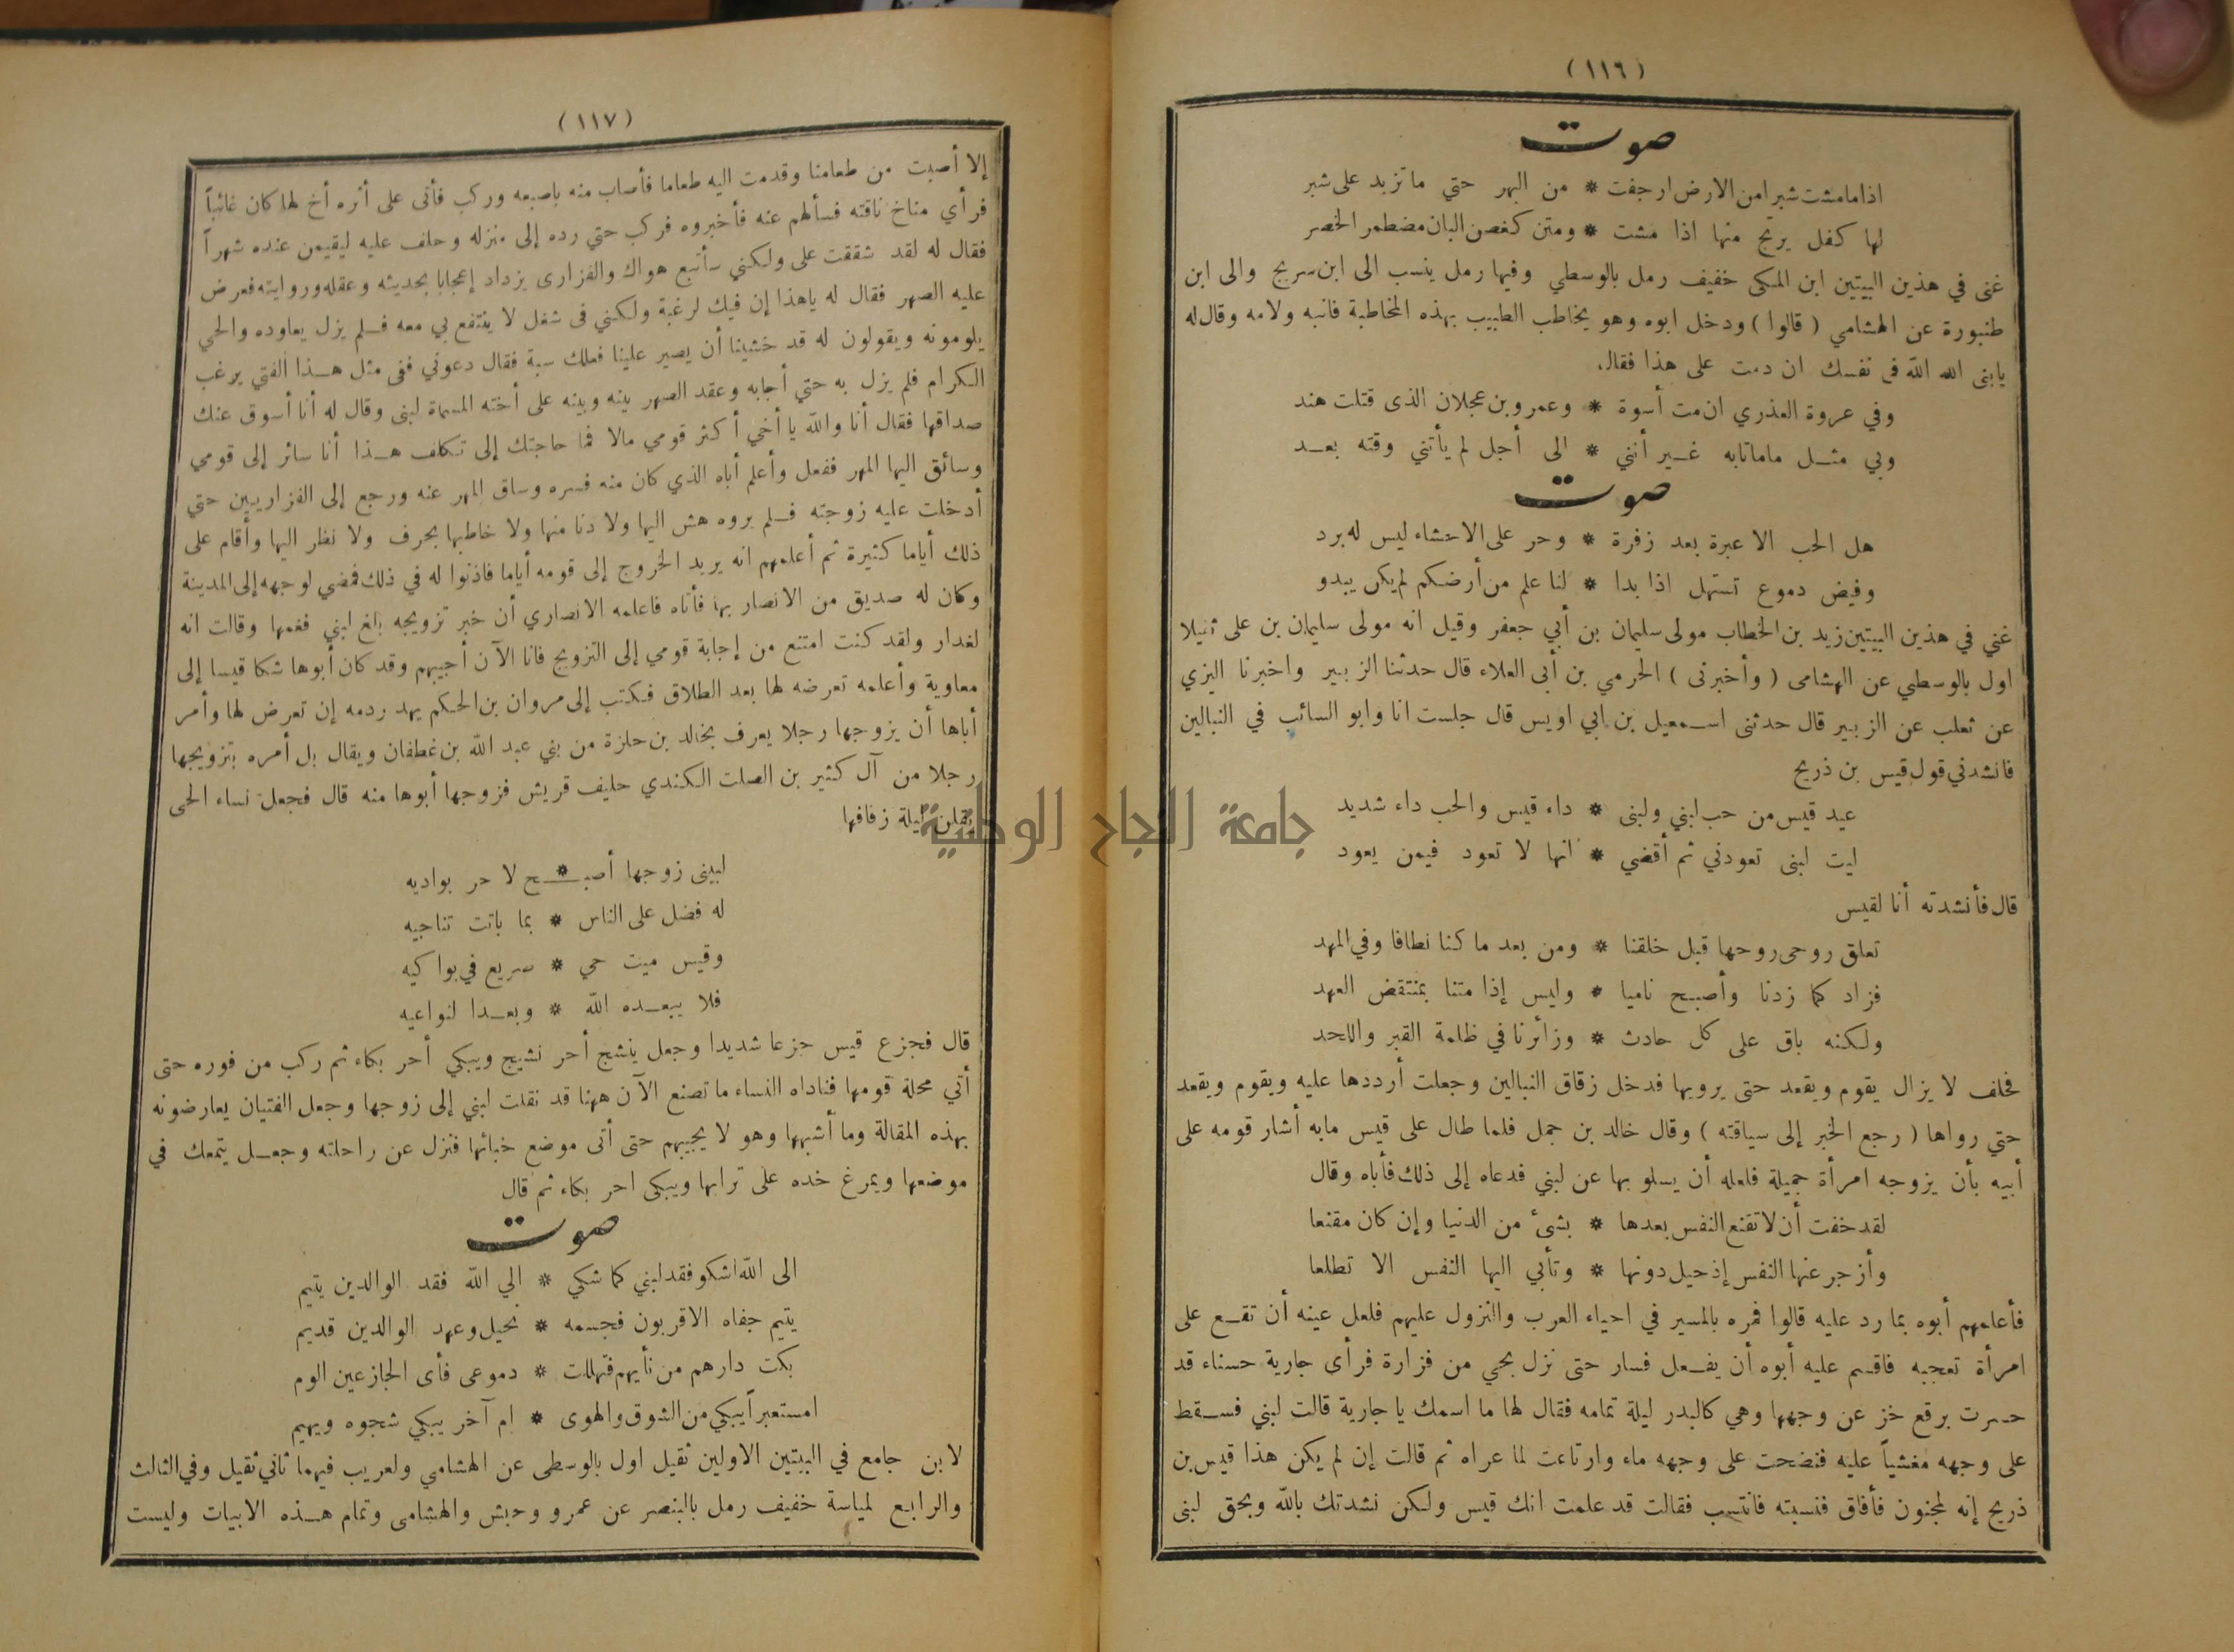 (١١٦)
صوت
اذا ما مشت شبرا من الارض ارجفت * من البهر حتي ما تزيد على شبر
لها كفل يرتج منها اذا مشت * ومتن كغصن البان مضطمر الخصر
غنى في هذين البيتين ابن المكى خفيف رمل بالوسطي وفيها رمل ينسب الى ابن سريج والى ابن
طنبورة عن الهشامي ( قالوا ) ودخل ابوه وهو يخاطب الطبيب بهذه المخاطبة فانبه ولامه وقال له
يابنى الله الله فى نفسك ان دمت على هذا فقال
وفي عروة العذري ان مت أسوة * وعمرو بن عجلان الذى قتلت هند
وبي مثل ماماتابه غير أنني * الى أجل لم يأتني وقته بعد
صوت
هل الحب الا عبرة بعد زفرة * وحر على الاحشاء ليس له برد
وفيض دموع تستهل اذا بدا * لنا علم من أرضكم لم يكن يبدو
غني في هذين البيتين زيد بن الخطاب مولى سليمان بن أبي جعفر وقيل انه مولى سليمان بن على ثقيلا
اول بالوسطي عن الهشامى ( وأخبرنى ) الحرمي بن أبى العلاء قال حدثنا الزبير واخبرنا اليزي
عن ثعلب عن الزبير قال حدثنى اسمعيل بن ابي اويس قال جلست انا وابو السائب في النبالين
فانشدني قول قيس بن ذريح
عيد قيس من حب لبني ولبنى * داء قيس والحب داء شديد
ليت لبنى تعودني ثم أقضي * انها لا تعود فيمن يعود
قال فأنشدته أنا لقيس
تعلق روحى روحها قبل خلقنا * ومن بعد ما كنا نطافا وفي المهد
فزاد كما زدنا وأصبح ناميا * وليس إذا متنا بمنتقض العهد
ولكنه باق على كل حادث * وزائرنا في ظلمة القبر واللحد
فحلف لا يزال يقوم ويقعد حتى يرويها فدخل زقاق النبالين وجعلت أرددها عليه ويقوم ويقعد
حتي رواها ( رجع الخبر إلى سياقته ) وقال خالد بن جمل فلما طال على قيس مابه أشار قومه على
أبيه بأن يزوجه امرأة جميلة فلعله أن يسلو بها عن لبني فدعاه إلى ذلك فأباه وقال
لقد خفت أن لا تقنع النفس بعدها * بشئ من الدنيا وإن كان مقنعا
وأزجر عنها النفس إذ حيل دونها * وتأبي اليها النفس الا تطلعا
فأعلمهم أبوه بما رد عليه قالوا فمره بالمسير في احياء العرب والنزول عليهم فلعل عينه أن تقع على
امرأة تعجبه فاقسم عليه أبوه أن يفعل فسار حتى نزل بحي من فزارة فرأى جارية حسناء قد
حسرت برقع خز عن وجهها وهي كالبدر ليلة تمامه فقال لها ما اسمك يا جارية قالت لبني فسقط
على وجهه مغشياً عليه فنضحت على وجهه ماء وارتاعت لما عراه ثم قالت إن لم يكن هذا قيس بن
ذريح إنه لمجنون فأفاق فنسبته فانتسب فقالت قد علمت انك قيس ولكن نشدتك بالله وبحق لبنى
(١١٧)
إلا أصبت من طعامنا وقدمت اليه طعاما فأصاب منه باصبعه وركب فأتى على أثره أخ لها كان غائباً
فرأي مناخ ناقته فسألهم عنه فأخبروه فركب حتي رده إلى منزله وحلف عليه ليقيمن عنده شهراً
فقال له لقد شققت على ولكني سأتبع هواك والفزارى يزداد إعجابا بحديثه وعقله وروايته فعرض
عليه الصهر فقال له ياهذا إن فيك لرغبة ولكني فى شغل لا ينتفع بي معه فلم يزل يعاوده والحي
يلومونه ويقولون له قد خشينا أن يصير علينا فعلك سبة فقال دعوني ففى مثل هذا الفتي يرغب
الكرام فلم يزل به حتي أجابه وعقد الصهر بينه وبينه على أخته المسماة لبنى وقال له أنا أسوق عنك
صداقها فقال أنا والله يا أخي أكثر قومي مالا فما حاجتك إلى تكلف هذا أنا سائر إلى قومي
وسائق اليها المهر ففعل وأعلم أباه الذي كان منه فسره وساق المهر عنه ورجع إلى الفزاريين حتي
أدخلت عليه زوجته فلم يروه هش اليها ولا دنا منها ولا خاطبها بحرف ولا نظر اليها وأقام على
ذلك أياما كثيرة ثم أعلمهم انه يريد الخروج إلى قومه أياما فاذنوا له في ذلك فمضي لوجهه إلى المدينة
وكان له صديق من الانصار بها فأتاه فاعلمه الانصاري أن خبر تزويجه بلغ لبني فغمها وقالت انه
لغدار ولقد كنت امتنع من إجابة قومي إلى التزويج فانا الآن أجيبهم وقد كان أبوها شكا قيسا إلى
معاوية وأعلمه تعرضه لها بعد الطلاق فكتب إلى مروان بن الحكم يهدر دمه إن تعرض لها وأمر
أباها أن يزوجها رجلا يعرف بخالد بن حلزة من بني عبد الله بن غطفان ويقال بل أمره بتزويجها
رجلا من آل كثير بن الصلت الكندي حليف قريش فزوجها أبوها منه قال فجعل نساء الحى
يقلن ليلة زفافها
لبينى زوجها أصبح * لا حر بواديه
له فضل على الناس * بما باتت تناجيه
وقيس ميت حي * صريع في بواكيه
فلا يبعده الله * وبعدا لنواعيه
قال فجزع قيس جزعا شديدا وجعل ينشج أحر نشيج ويبكي أحر بكاء ثم ركب من فوره حتى
أتي محلة قومها فناداه النساء ما تصنع الآن ههنا قد نقلت لبني إلى زوجها وجعل الفتيان يعارضونه
بهذه المقالة وما أشبهها وهو لا يجيبهم حتى أتى موضع خبائها فنزل عن راحلته وجعل يتمعك في
موضعها ويمرغ خده على ترابها ويبكى احر بكاء ثم قال
صوت
الى الله اشكو فقد لبني كما شكي * الي الله فقد الوالدين يتيم
يتيم جفاه الاقربون فجسمه * نحيل وعهد الوالدين قديم
بكت دارهم من نأيهم فتهللت * دموعى فأى الجازعين الوم
امستعبراً يبكي من الشوق والهوى * ام آخر يبكي شجوه ويهيم
لابن جامع في البيتين الاولين ثقيل اول بالوسطى عن الهشامي ولعريب فيهما ثاني ثقيل وفي الثالث
والرابع لمياسة خفيف رمل بالبنصر عن عمرو وحبش والهشامى وتمام هذه الابيات وليست
جامعة النجاح الوطنية